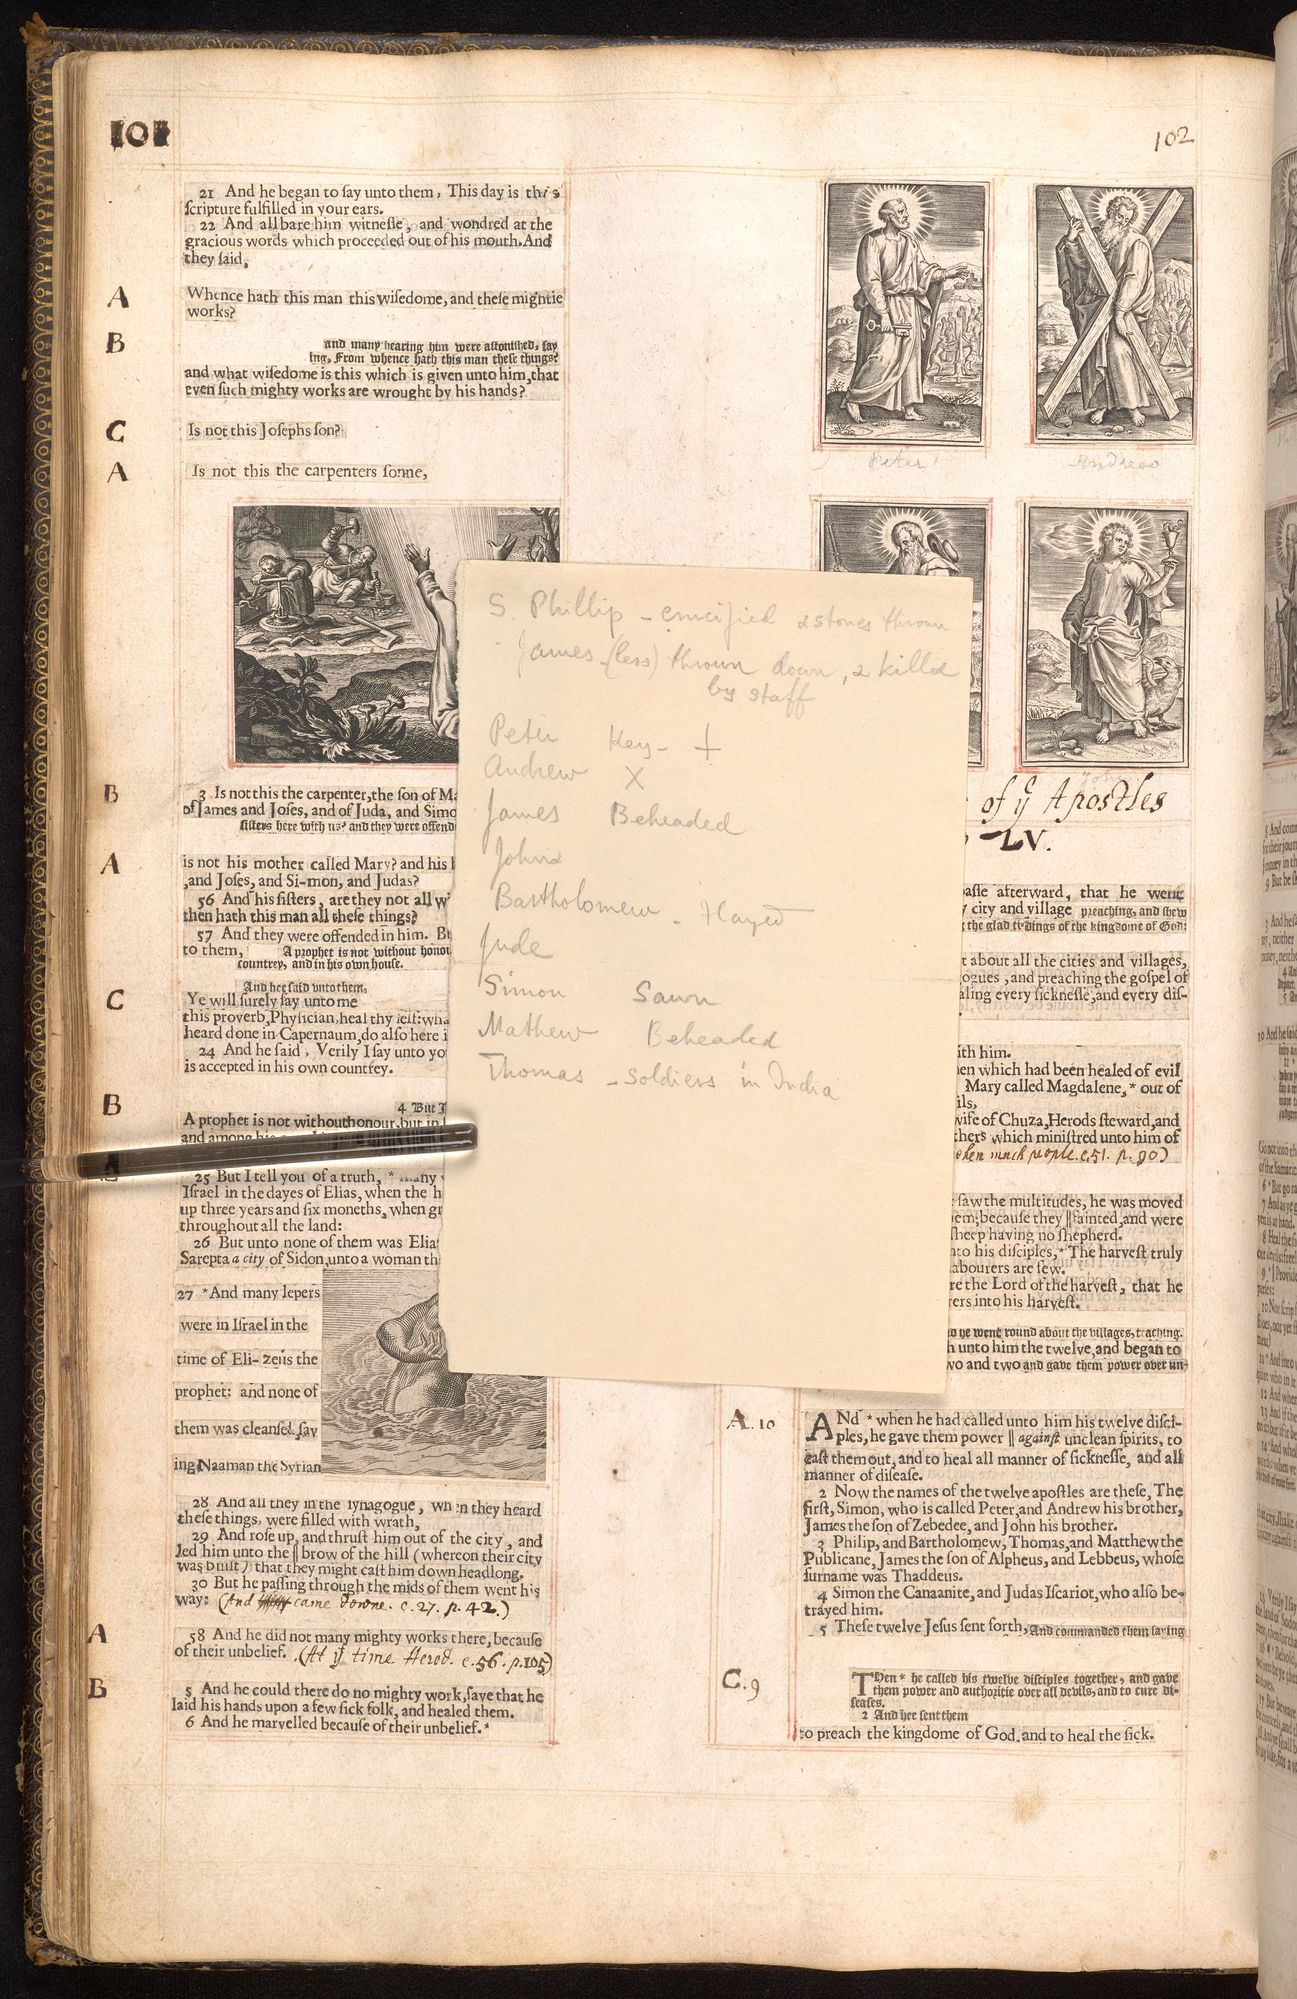 101
102
21 And he began to ſay unto them, This day is this
ſcripture fulfilled in your ears.
22 And all bare him witneſſe, and wondred at the
gracious words which proceeded out of his mouth. And
they ſaid,
A
Whence hath this man this wiſedome, and theſe mightie
works?
B
and many hearing him were aſtoniſhed, ſay
ing, From whence hath this man theſe things?
and what wiſedome is this which is given unto him, that
even ſuch mighty works are wrought by his hands?
C
Is not this Joſephs ſon?
A
Is not this the carpenters ſonne,
B
3 Is not this the carpenter, the ſon of Ma
of James and Joſes, and of Juda, and Simo
ſiſters here with us? and they were offend
A
is not his mother called Mary? and his
,and Joſes, and Si-mon, and Judas?
56 And his ſiſters, are they not all w
then hath this man all theſe things?
57 And they were offended in him. B
to them, A prophet is not without honou
countrey, and in his own houſe.
And hee ſaid unto them,
C
Ye will ſurely ſay unto me
this proverb, Phyſician, heal thy ſelf: wha
heard done in Capernaum, do alſo here i
24 And he ſaid, Verily I ſay unto yo
is accepted in his own countrey.
B
4 But J
A prophet is not without honour, but in
and among his
25 But I tell you of a truth, * many
Iſrael in the dayes of Elias, when the h
up three years and ſix moneths, when gr
throughout all the land:
26 But unto none of them was Elia
Sarepta a city of Sidon, unto a woman th
27 *And many lepers
were in Iſrael in the
time of Eli-zeus the
prophet: and none of
them was cleanſed, ſav
ing Naaman the Syrian
28 And all they in the ſynagogue, when they heard
theſe things, were filled with wrath,
29 And roſe up, and thruſt him out of the city, and
led him unto the || brow of the hill (whereon their city
was built) that they might caſt him down headlong.
30 But he paſſing through the mids of them went his
way: (And came downe. c. 27. p. 42.)
A
58 And he did not many mighty works there, becauſe
of their unbelief. (At yͤ time Herod. c. 56. p. 105)
B
5 And he could there do no mighty work, ſave that he
laid his hands upon a few ſick folk, and healed them.
6 And he marvelled becauſe of their unbelief.*
Peter
Andrew
John
S. Phillip - crucified & stones thrown
James (less) thrown down, & killed
by staff
Peter Key - †
Andrew X
James Beheaded
John
Bartholomew - Flayed
Jude
Simon Sawn
Mathew Beheaded
Thomas - soldiers in India
of yͤ Apostles
LV.
paſſe afterward, that he went
city and village preaching, and ſhew
the glad ti-dings of the kingdome of God:
t about all the cities and villages,
ogues, and preaching the goſpel of
aling every ſickneſſe, and every diſ-
ith him.
en which had been healed of evil
Mary called Magdalene, * out of
ils,
wife of Chuza, Herods ſteward, and
thers which miniſtred unto him of
when much people. c. 51. p. 90)
ſaw the multitudes, he was moved
em; becauſe they || fainted, and were
ſheep having no ſhepherd.
nto his diſciples, * The harveſt truly
labourers are few.
re the Lord of the harveſt, that he
rers into his harveſt.
d he went round about the villages, teaching.
h unto him the twelve, and began to
wo and two and gave them power over un-
A. 10
ANd * when he had called unto him his twelve diſci-
ples, he gave them power || againſt unclean ſpirits, to
caſt them out, and to heal all manner of ſickneſſe, and all
manner of diſeaſe.
2 Now the names of the twelve apoſtles are theſe, The
firſt, Simon, who is called Peter, and Andrew his brother,
James the ſon of Zebedee, and John his brother.
3 Philip, and Bartholomew, Thomas, and Matthew the
Publicane, James the ſon of Alpheus, and Lebbeus, whoſe
ſurname was Thaddeus.
4 Simon the Canaanite, and Judas Iſcariot, who alſo be-
trayed him.
5 Theſe twelve Jeſus ſent forth, And commanded them ſaying
C. 9
THen * he called his twelve diſciples together, and gave
them power and authoritie over all devils, and to cure diſ-
eaſes.
2 And hee ſent them
to preach the kingdome of God, and to heal the ſick.